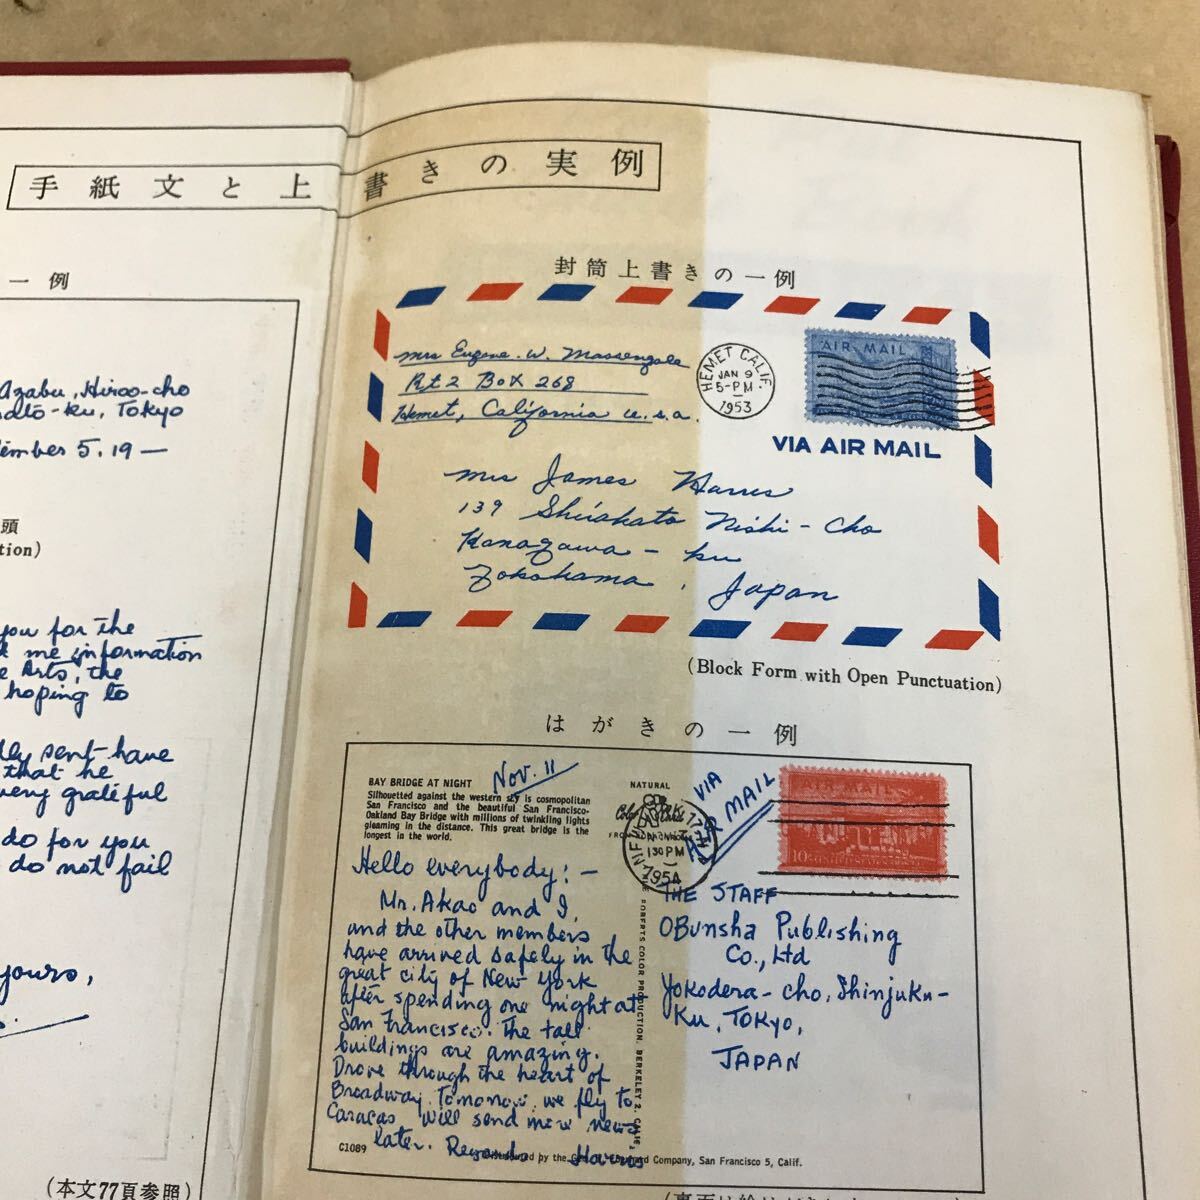 手紙文と上書きの実例
一例
Azabu, Hiroo-cho
ku, Tokyo
5. 19—
頭
tion)
you for the
me information
Arts, the
hoping to
sent have
that he
very grateful
do for you
do not fail
yours,
(本文77頁参照)
封筒上書きの一例
Mrs Eugene. W. Massengale
Rt 2 Box 268
Hemet, California u.s.a.
HEMET CALIF.
JAN 9
5-PM
1953
AIR MAIL
VIA AIR MAIL
Mrs James Harris
139 Shirahata Nishi-cho
Kanagawa-ku
Yokohama, Japan
(Block Form with Open Punctuation)
はがきの一例
BAY BRIDGE AT NIGHT
Silhouetted against the western sky is cosmopolitan
San Francisco and the beautiful San Francisco-
Oakland Bay Bridge with millions of twinkling lights
gleaming in the distance. This great bridge is the
longest in the world.
Nov. 11
NATURAL
1 30 PM
1954
VIA
AIR MAIL
AIR MAIL
10¢
Hello everybody:—
Mr. Akao and I,
and the other members
have arrived safely in the
great city of New York
after spending one night at
San Francisco. The tall
buildings are amazing.
Drove through the heart of
Broadway. Tomorrow we fly to
Caracas will send more news
later. Regards Harris
THE STAFF
OBunsha Publishing
Co., Ltd
Yokodera-cho, Shinjuku-
Ku, TOKYO,
JAPAN
ROBERTS COLOR PRODUCTION, BERKELEY 2, CALIF.
C1089
by the
Company, San Francisco 5, Calif.